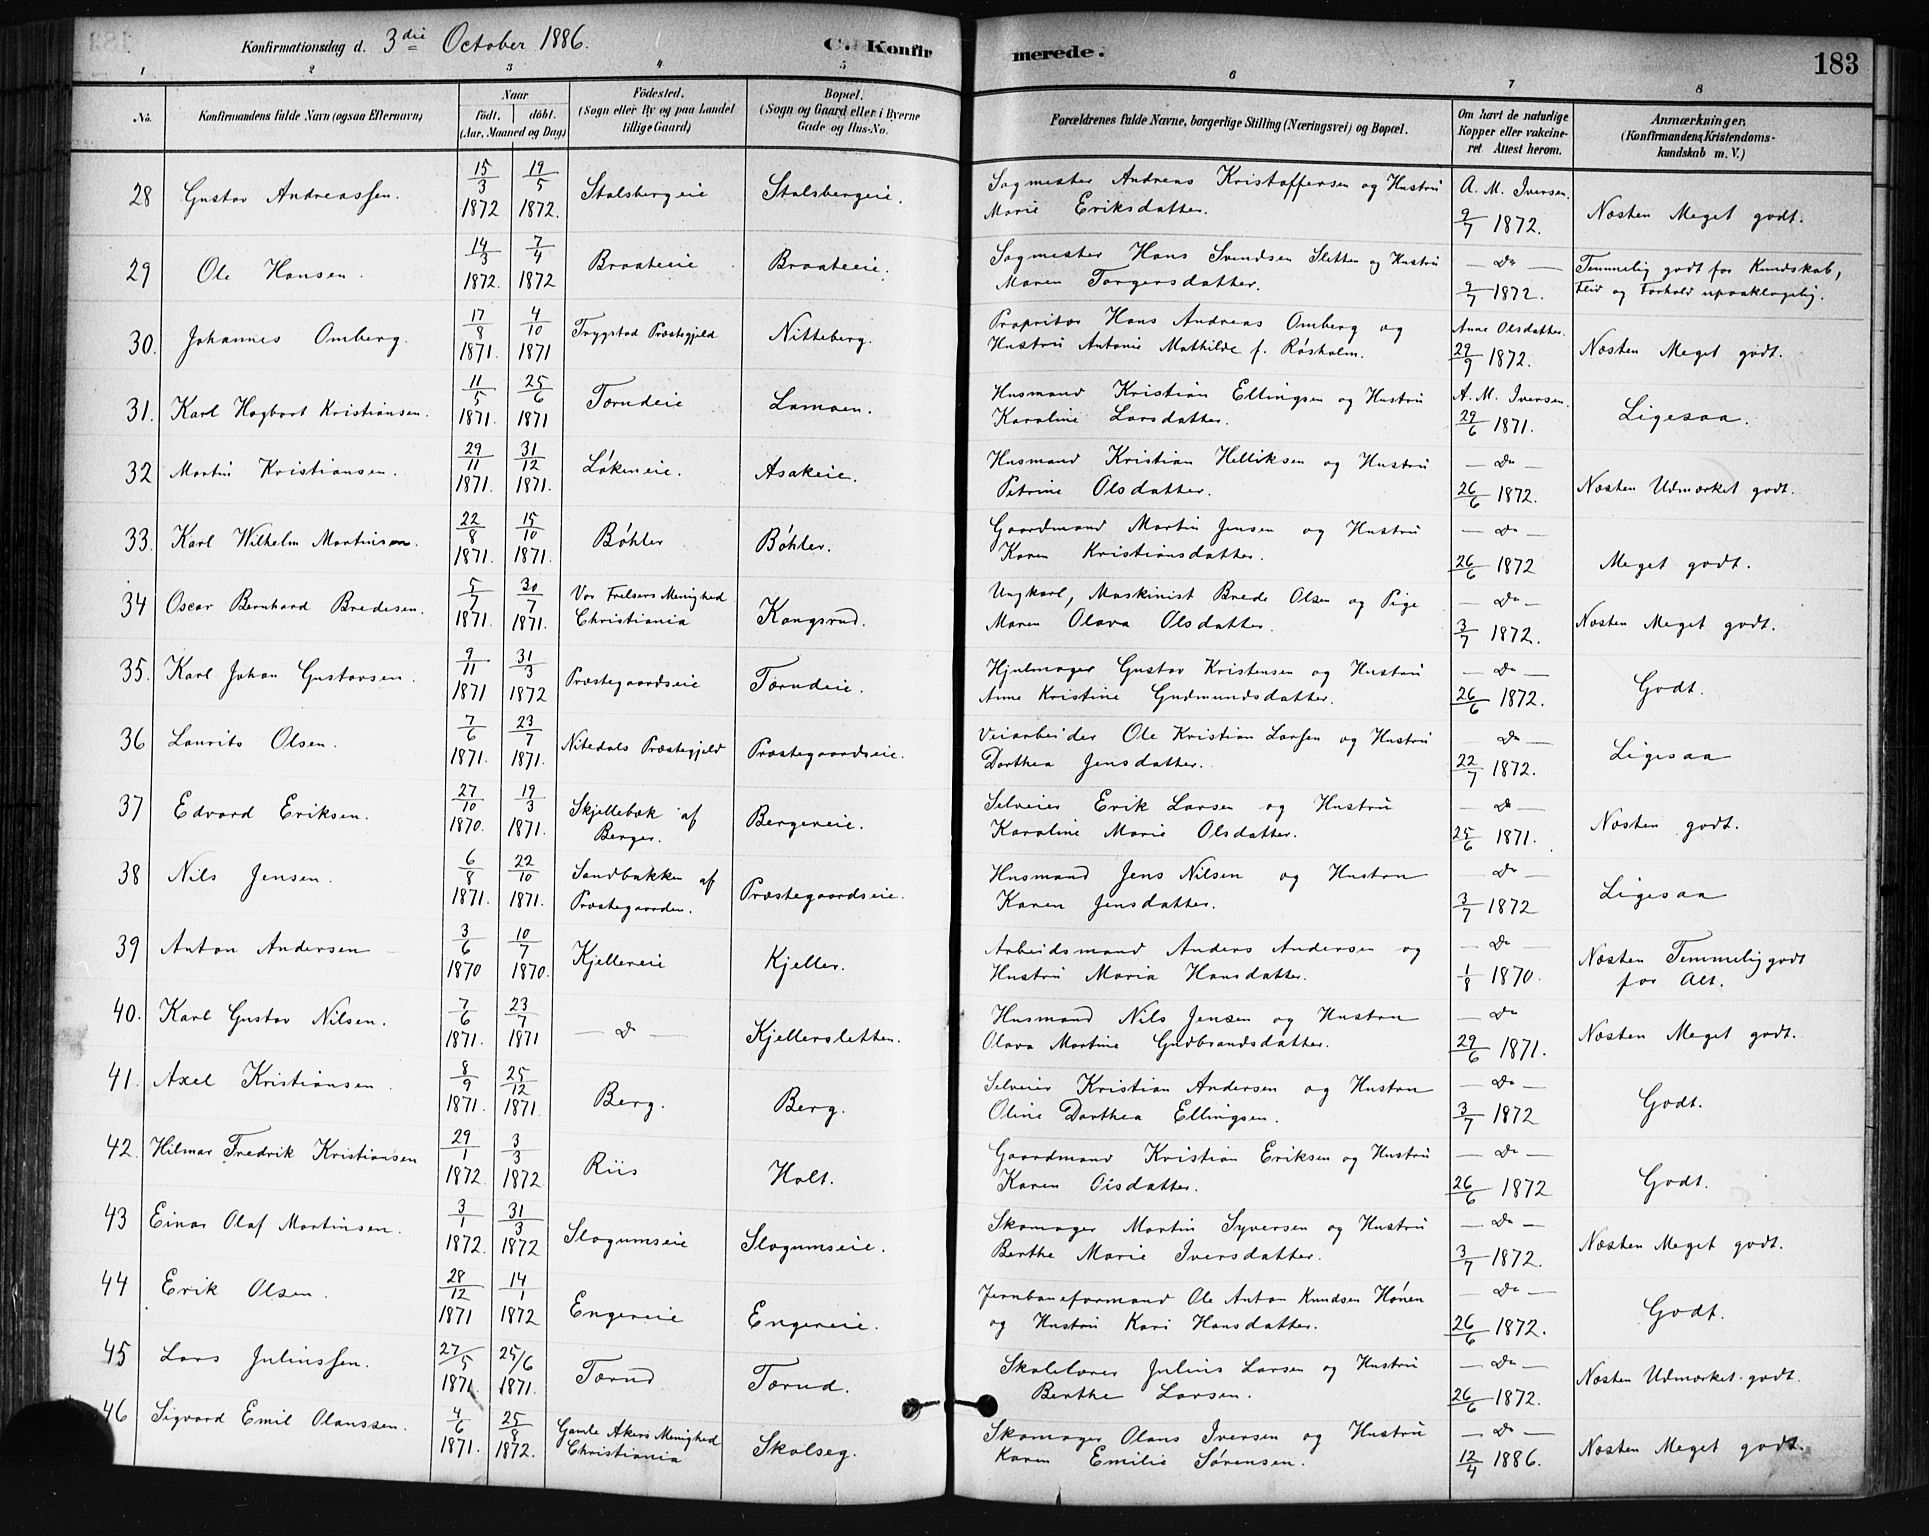 Konfirmationsdag d. 3die October 1886. C. Konfirmerede. 183
1 2 3 4 5 6 7 8
No. Konfirmandens fulde Navn (ogsaa Efternavn) Naar födt. döbt. (Aar, Maaned og Dag) Födested. (Sogn eller By og paa Landet tillige Gaard) Bopæl. (Sogn og Gaard eller i Byerne Gade og Hus-No. Forældrenes fulde Navne, borgerlige Stilling (Næringsvei) og Bopæl. Om havt de naturlige Kopper eller vakcineret Attest herom. Anmærkninger, (Konfirmandens Kristendomskundskab m. V.)
28 Gustav Andreassen. 15/3 1872 19/5 1872. Stalsbergeie Stalsbergeie. Sagmester Andreas Kristoffersen og Hustru Marie Eriksdatter. A. M. Iversen. 9/7 1872. Næsten Meget godt.
29 Ole Hansen. 14/3 1872. 7/4 1872 Braateeie Braateeie. Sagmester Hans Svendsen Sletten og Hustru Maren Torgersdatter. — Do — 9/7 1872. Temmelig godt for Kundskab, Flid og Forhold upaaklagelig.
30. Johannes Omberg. 17/8 1871. 4/10 1871 Trygstad Præstegjeld Nitteberg. Propritær Hans Andreas Omberg og Hustru Antonie Mathilde f. Røsholm. Anne Olsdatter. 29/9 1872. Næsten Meget godt.
31. Karl Hagbart Kristiansen. 11/5 1871. 25/6 1871 Tærudeie Lamoen. Husmand Kristian Ellingsen og Hustru Karoline Larsdatter. A. M. Iversen. 29/6 1871. Ligesaa.
32 Martin Kristiansen. 29/11 1871. 31/12 1871. Løkeneie. Asakeie. Husmand Kristian Helliksen og Hustru Petrine Olsdatter. — Do — 26/6 1872. Næsten Udmærket godt.
33. Karl Wilhelm Martinsen. 22/8 1871. 15/10 1871. Bøhler Bøhler. Gaardmand Martin Jensen og Hustru Karen Kristiansdatter. — Do — 26/6 1872 Meget godt.
34 Oscar Bernhard Bredesen. 5/7 1871. 30/7 1871. Vor Frelsers Menighed Christiania Kongsrud. Ungkarl, Maskinist Brede Olsen og Pige Maren Olava Olsdatter. — Do — 3/7 1872. Næsten Meget godt.
35. Karl Johan Gustavsen. 9/11 1871 31/3 1872 Præstegaardseie Tærudeie. Hjulmager Gustav Kristensen og Hustru Anne Kristine Gudmundsdatter. — Do — 26/6 1872. Godt.
36 Laurits Olsen. 7/6 1871. 23/7 1871. Nitedals Præstegjeld Præstegaardseie. Veiarbeider Ole Kristian Larsen og Hustru Dorthea Jensdatter. Do — 22/7 1872. Ligesaa
37 Edvard Eriksen. 27/10 1870. 19/3 1871. Skjellebæk af Berger. Bergereie. Selveier Erik Larsen og Hustru Karoline Marie Olsdatter. — Do — 25/6 1871. Næsten godt.
38 Nils Jensen. 6/8 1871. 22/10 1871. Sandbakken af Præstegaarden. Præstegaardseie. Husmand Jens Nilsen og Hustru Karen Jensdatter. — Do — 3/7 1872 Ligesaa
39 Anton Andersen 3/6 1870 10/7 1870. Kjellereie Kjeller. Arbeidsmand Anders Andersen og Hustru Maria Hansdatter. — Do — 1/8 1870. Næsten Temmelig godt for Alt.
40. Karl Gustav Nilsen. 7/6 1871. 23/7 1871 — Do — Kjellersletten. Husmand Nils Jensen og Hustru Olava Martine Gudbrandsdatter. — Do 29/6 1871. Næsten Meget godt.
41. Axel Kristiansen. 8/9 1871. 25/12 1871. Berg. Berg. Selveier Kristian Andersen og Hustru Oline Dorthea Ellingsen. — Do — 3/7 1872 Godt.
42. Hilmar Fredrik Kristiansen 29/1 1872. 3/3 1872 Riis Holt. Gaardmand Kristian Eriksen og Hustru Karen Olsdatter. — Do — 26/6 1872 Godt.
43 Einar Olaf Martinsen. 3/1 1872. 31/3 1872 Slogumseie Slogumseie. Skomager Martin Syversen og Hustru Berthe Marie Iversdatter. — Do — 3/7 1872. Næsten Meget godt.
44 Erik Olsen. 28/12 1871 14/1 1872 Engereie Engereie. Jernbaneformand Ole Anton Knudsen Hønen og Hustru Kari Hansdatter. — Do — 26/6 1872. Godt.
45 Lars Juliussen. 27/5 1871. 25/6 1871. Tærud Tærud. Skolelærer Julius Larsen og Hustru Berthe Larsen. — Do — 26/6 1872. Næsten Udmærket godt.
46 Sigvard Emil Olaussen. 4/6 1871. 25/8 1872. Gamle Akers Menighed Christiania Skolseg. Skomager Olaus Iversen og Hustru Karen Emilie Sørensen. — Do — 12/4 1886. Næsten Meget godt.